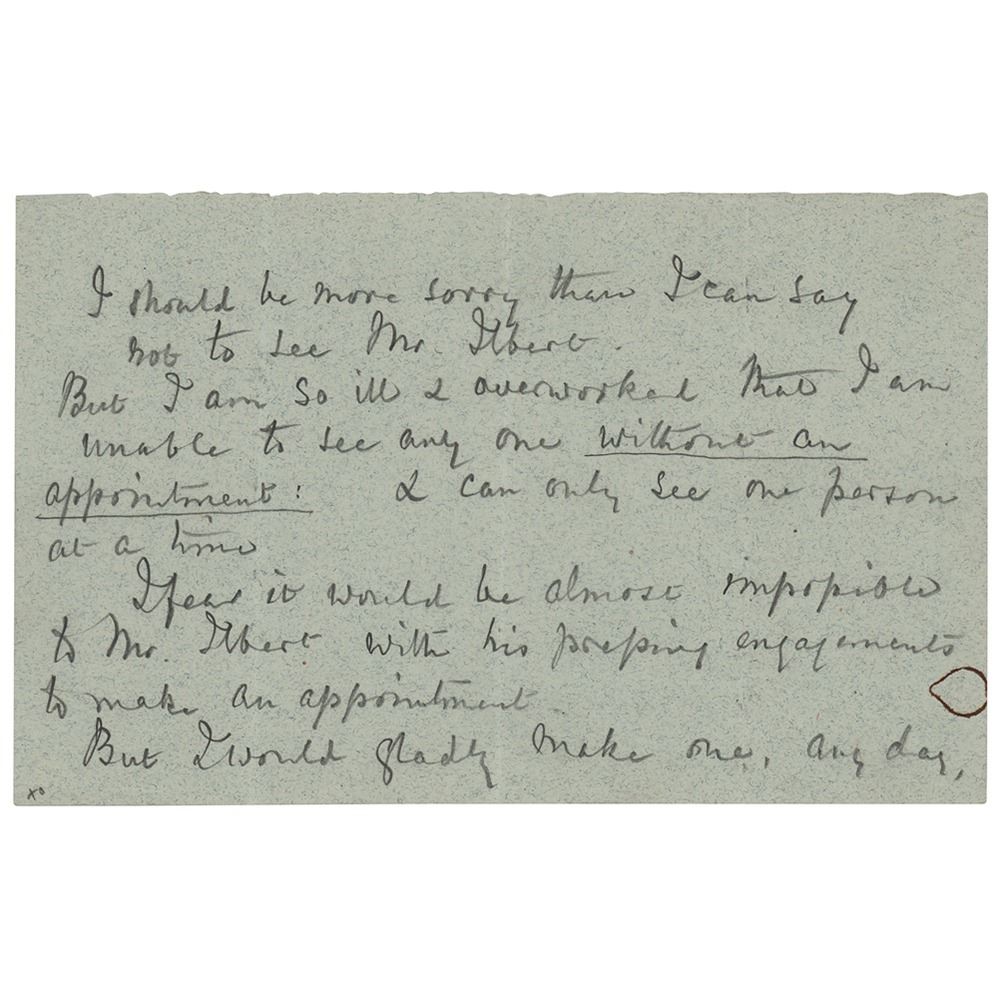 I should be more sorry than I can say
not to see Mr. Ilbert.
But I am so ill & overworked that I am
unable to see any one without an
appointment: & can only see one person
at a time
I fear it would be almost impossible
to Mr. Ilbert with his pressing engagements
to make an appointment
But I would gladly make one, any day,
xo